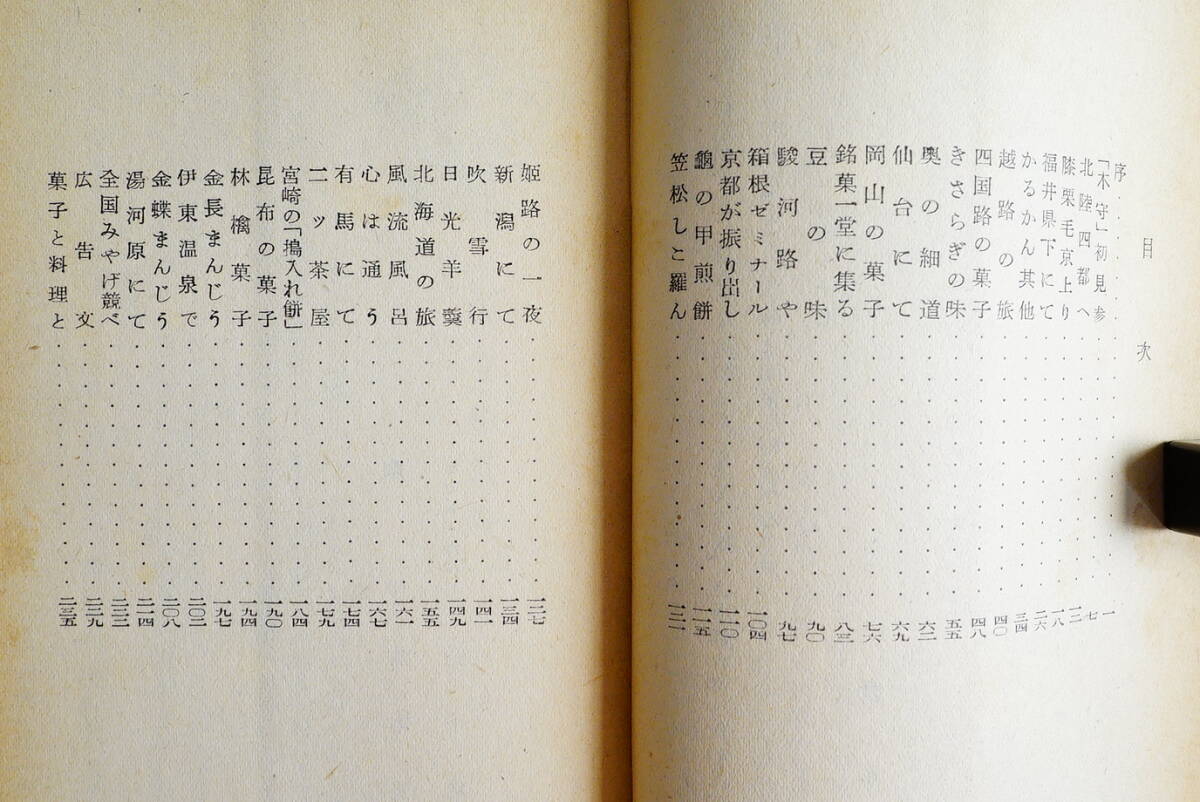 目次
序 一
「木守」初見参 七
北陸四都へ 一二
膝栗毛京上り 一八
福井県下にて 二六
かるかん其他 三四
越路の旅 四〇
四国路の菓子 四八
きさらぎの味 五五
奥の細道 六二
仙台にて 六九
岡山の菓子 七六
銘菓一堂に集る 八三
豆の味 九〇
駿河路や 九七
箱根ゼミナール 一〇四
京都が振り出し 一一〇
龜の甲煎餅 一一五
笠松しこ羅ん 一二一
姫路の一夜 一二七
新潟にて 一三四
吹雪行 一四一
日光羊羹 一四九
北海道の旅 一五五
風流風呂 一六一
心は通う 一六七
有馬にて 一七四
二ッ茶屋 一七九
宮崎の「搗入れ餅」 一八四
昆布の菓子 一九〇
林檎菓子 一九四
金長まんじう 一九七
伊東温泉で 二〇二
金蝶まんじう 二〇八
湯河原にて 二一四
全国みやげ競べ 二二三
広告文 二二九
菓子と料理と 二三五